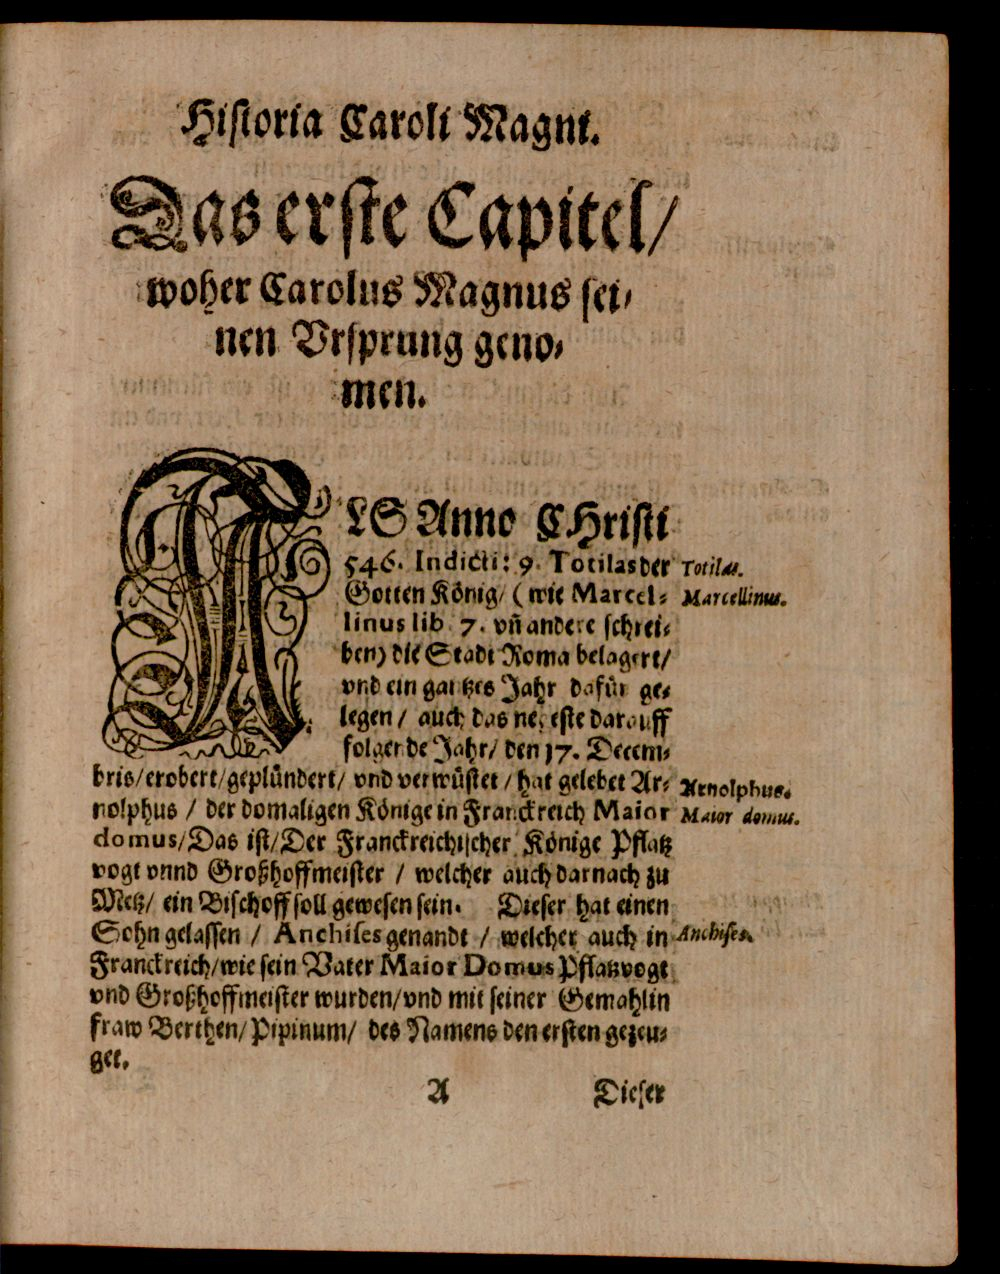 Historia Caroli Magni.
Das erste Capitel/
woher Carolus Magnus sei⸗
nen Vrsprung geno⸗
men.
ALS Anno CHristi
546. Indicti: 9. Totilas der
Totilas.
Gotten König/ (wie Marcel⸗
Marcellinus.
linus lib. 7. vñ andere schrei⸗
ben) die Stadt Roma belagert/
vnd ein gantzes Jahr dafür ge⸗
legen / auch das neheste darauff
folgende Jahr/ den 17. Decem⸗
bris/erobert/geplündert/ vnd verwüstet / hat gelebet Ar⸗
Arnolphus.
nolphus / der domaligen Könige in Franckreich Maior
Maior domus.
domus/Das ist/Der Franckreichischer Könige Pflatz
vogt vnnd Großhoffmeister / welcher auch darnach zu
Metz/ ein Bischoff soll gewesen sein. Dieser hat einen
Sohn gelassen / Anchises genandt / welcher auch in
Anchises.
Franckreich/wie sein Vater Maior Domus Pflatzvogt
vnd Großhoffmeister wurden/vnd mit seiner Gemahlin
fraw Berthen/ Pipinum/ des Namens den ersten gezeu⸗
get.
A Dieser